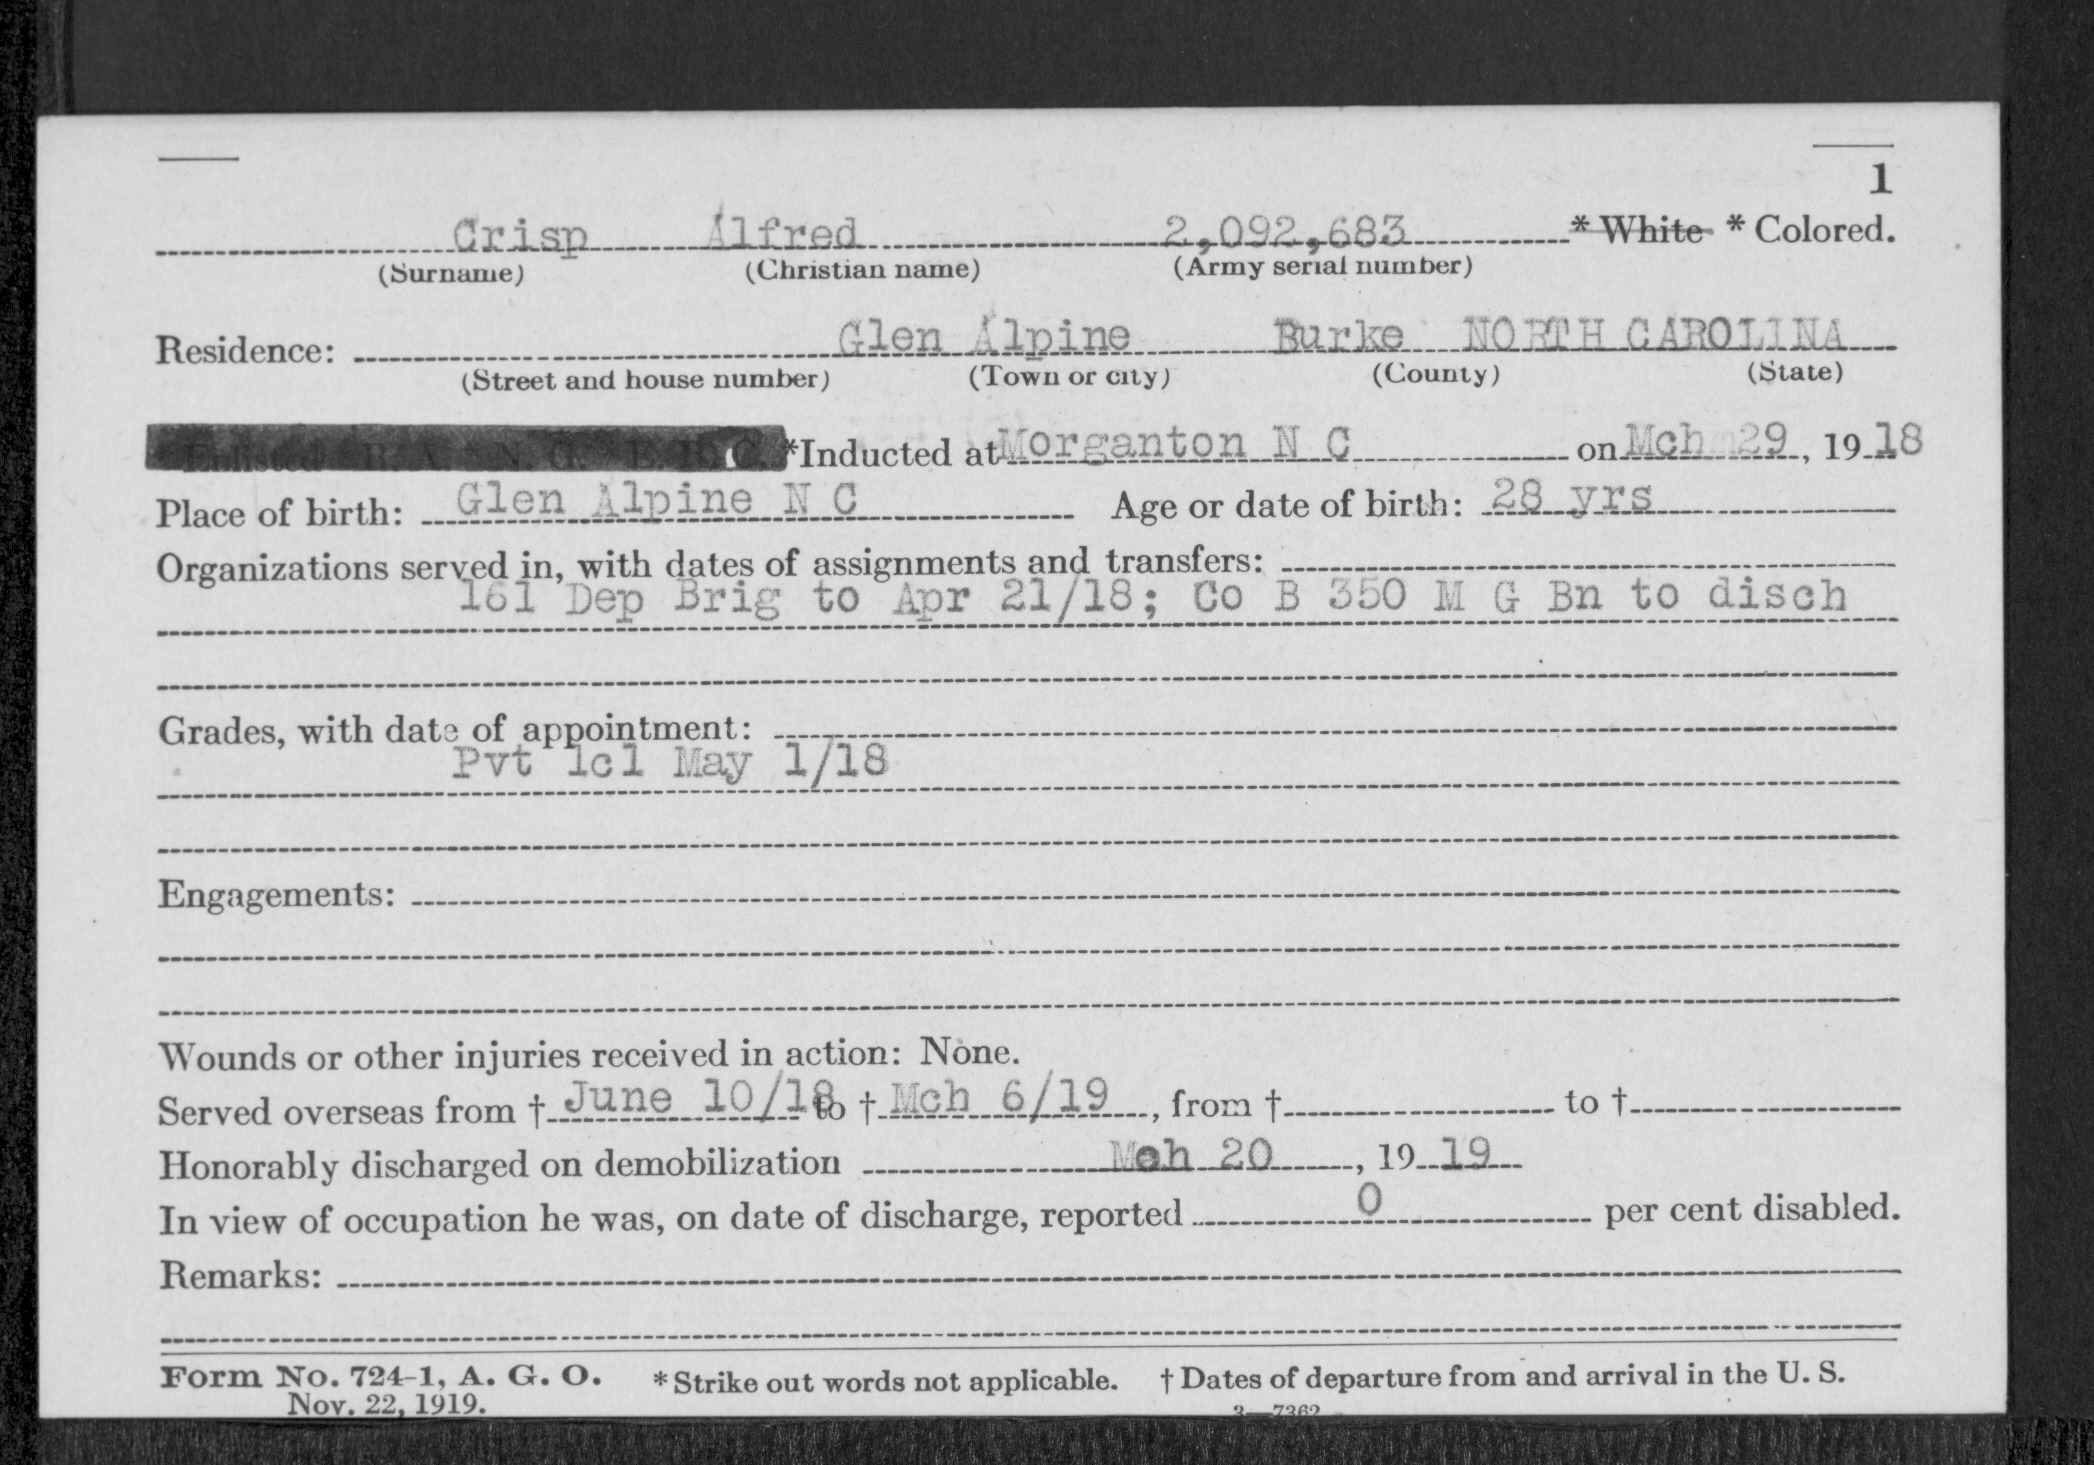 1
Crisp Alfred 2,092,683 * White * Colored.
(Surname) (Christian name) (Army serial number)
Residence: Glen Alpine Burke NORTH CAROLINA
(Street and house number) (Town or city) (County) (State)
Enlisted R. A. * N. G. * E. R. C. *Inducted at Morganton N C on Mch 29, 19 18
Place of birth: Glen Alpine N C Age or date of birth: 28 yrs
Organizations served in, with dates of assignments and transfers:
161 Dep Brig to Apr 21/18; Co B 350 M G Bn to disch
Grades, with date of appointment:
Pvt 1cl May 1/18
Engagements:
Wounds or other injuries received in action: None.
Served overseas from † June 10/18 to † Mch 6/19, from † to †
Honorably discharged on demobilization Mch 20, 19 19
In view of occupation he was, on date of discharge, reported 0 per cent disabled.
Remarks:
Form No. 724-1, A. G. O. * Strike out words not applicable. † Dates of departure from and arrival in the U. S.
Nov. 22, 1919. 3—7362